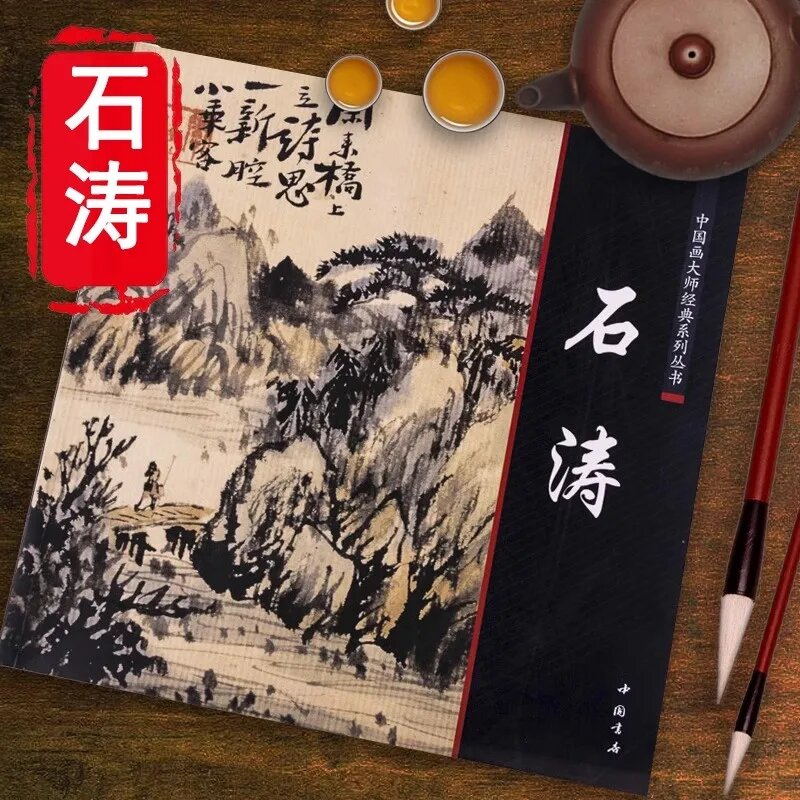 石涛
橋上
立詩思
一新腔
小乘客
中国画大师经典系列丛书
石涛
中國書店